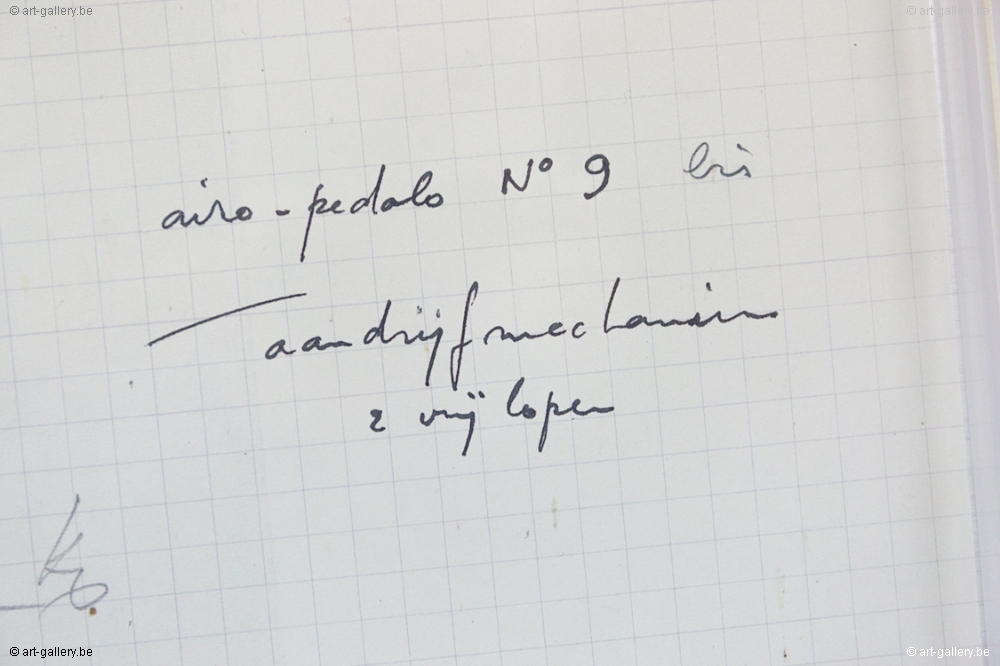 © art-gallery.be © art-gallery.be
airo-pedalo Nº 9 bis
aandrijfmechanism
2 vrij lopen
© art-gallery.be © art-gallery.be